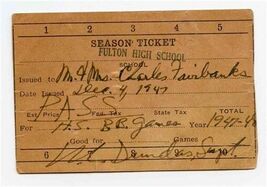 1 2 3 4 5
SEASON TICKET
FULTON HIGH SCHOOL
SCHOOL
Issued to Mr & Mrs. Charles Fairbanks
Dec. 4, 1947
PASS
Est. Price Fed. Tax State Tax TOTAL
For H.S. B.B. Games 1947-48
Good for: Games
6 Supt